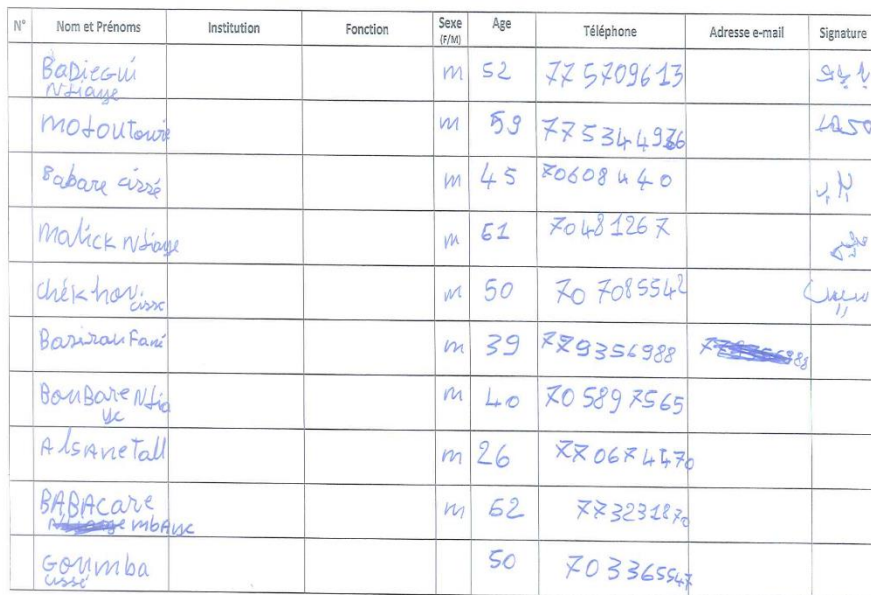 N° Nom et Prénoms Institution Fonction Sexe (F/M) Age Téléphone Adresse e-mail Signature
BaDiegui Ndiaye m 52 775709613
modou Touré m 59 775344936
Babare cissé m 45 70608440
Malick Ndiaye m 61 70481267
chékhou cissé m 50 70 7085542
Basirou Fané m 39 779356988
BouBare Ndiaye m 40 70 5897565
AlsAne tall m 26 77 0674470
BABAcare mbAye m 62 773231870
Goumba cissé 50 703365547